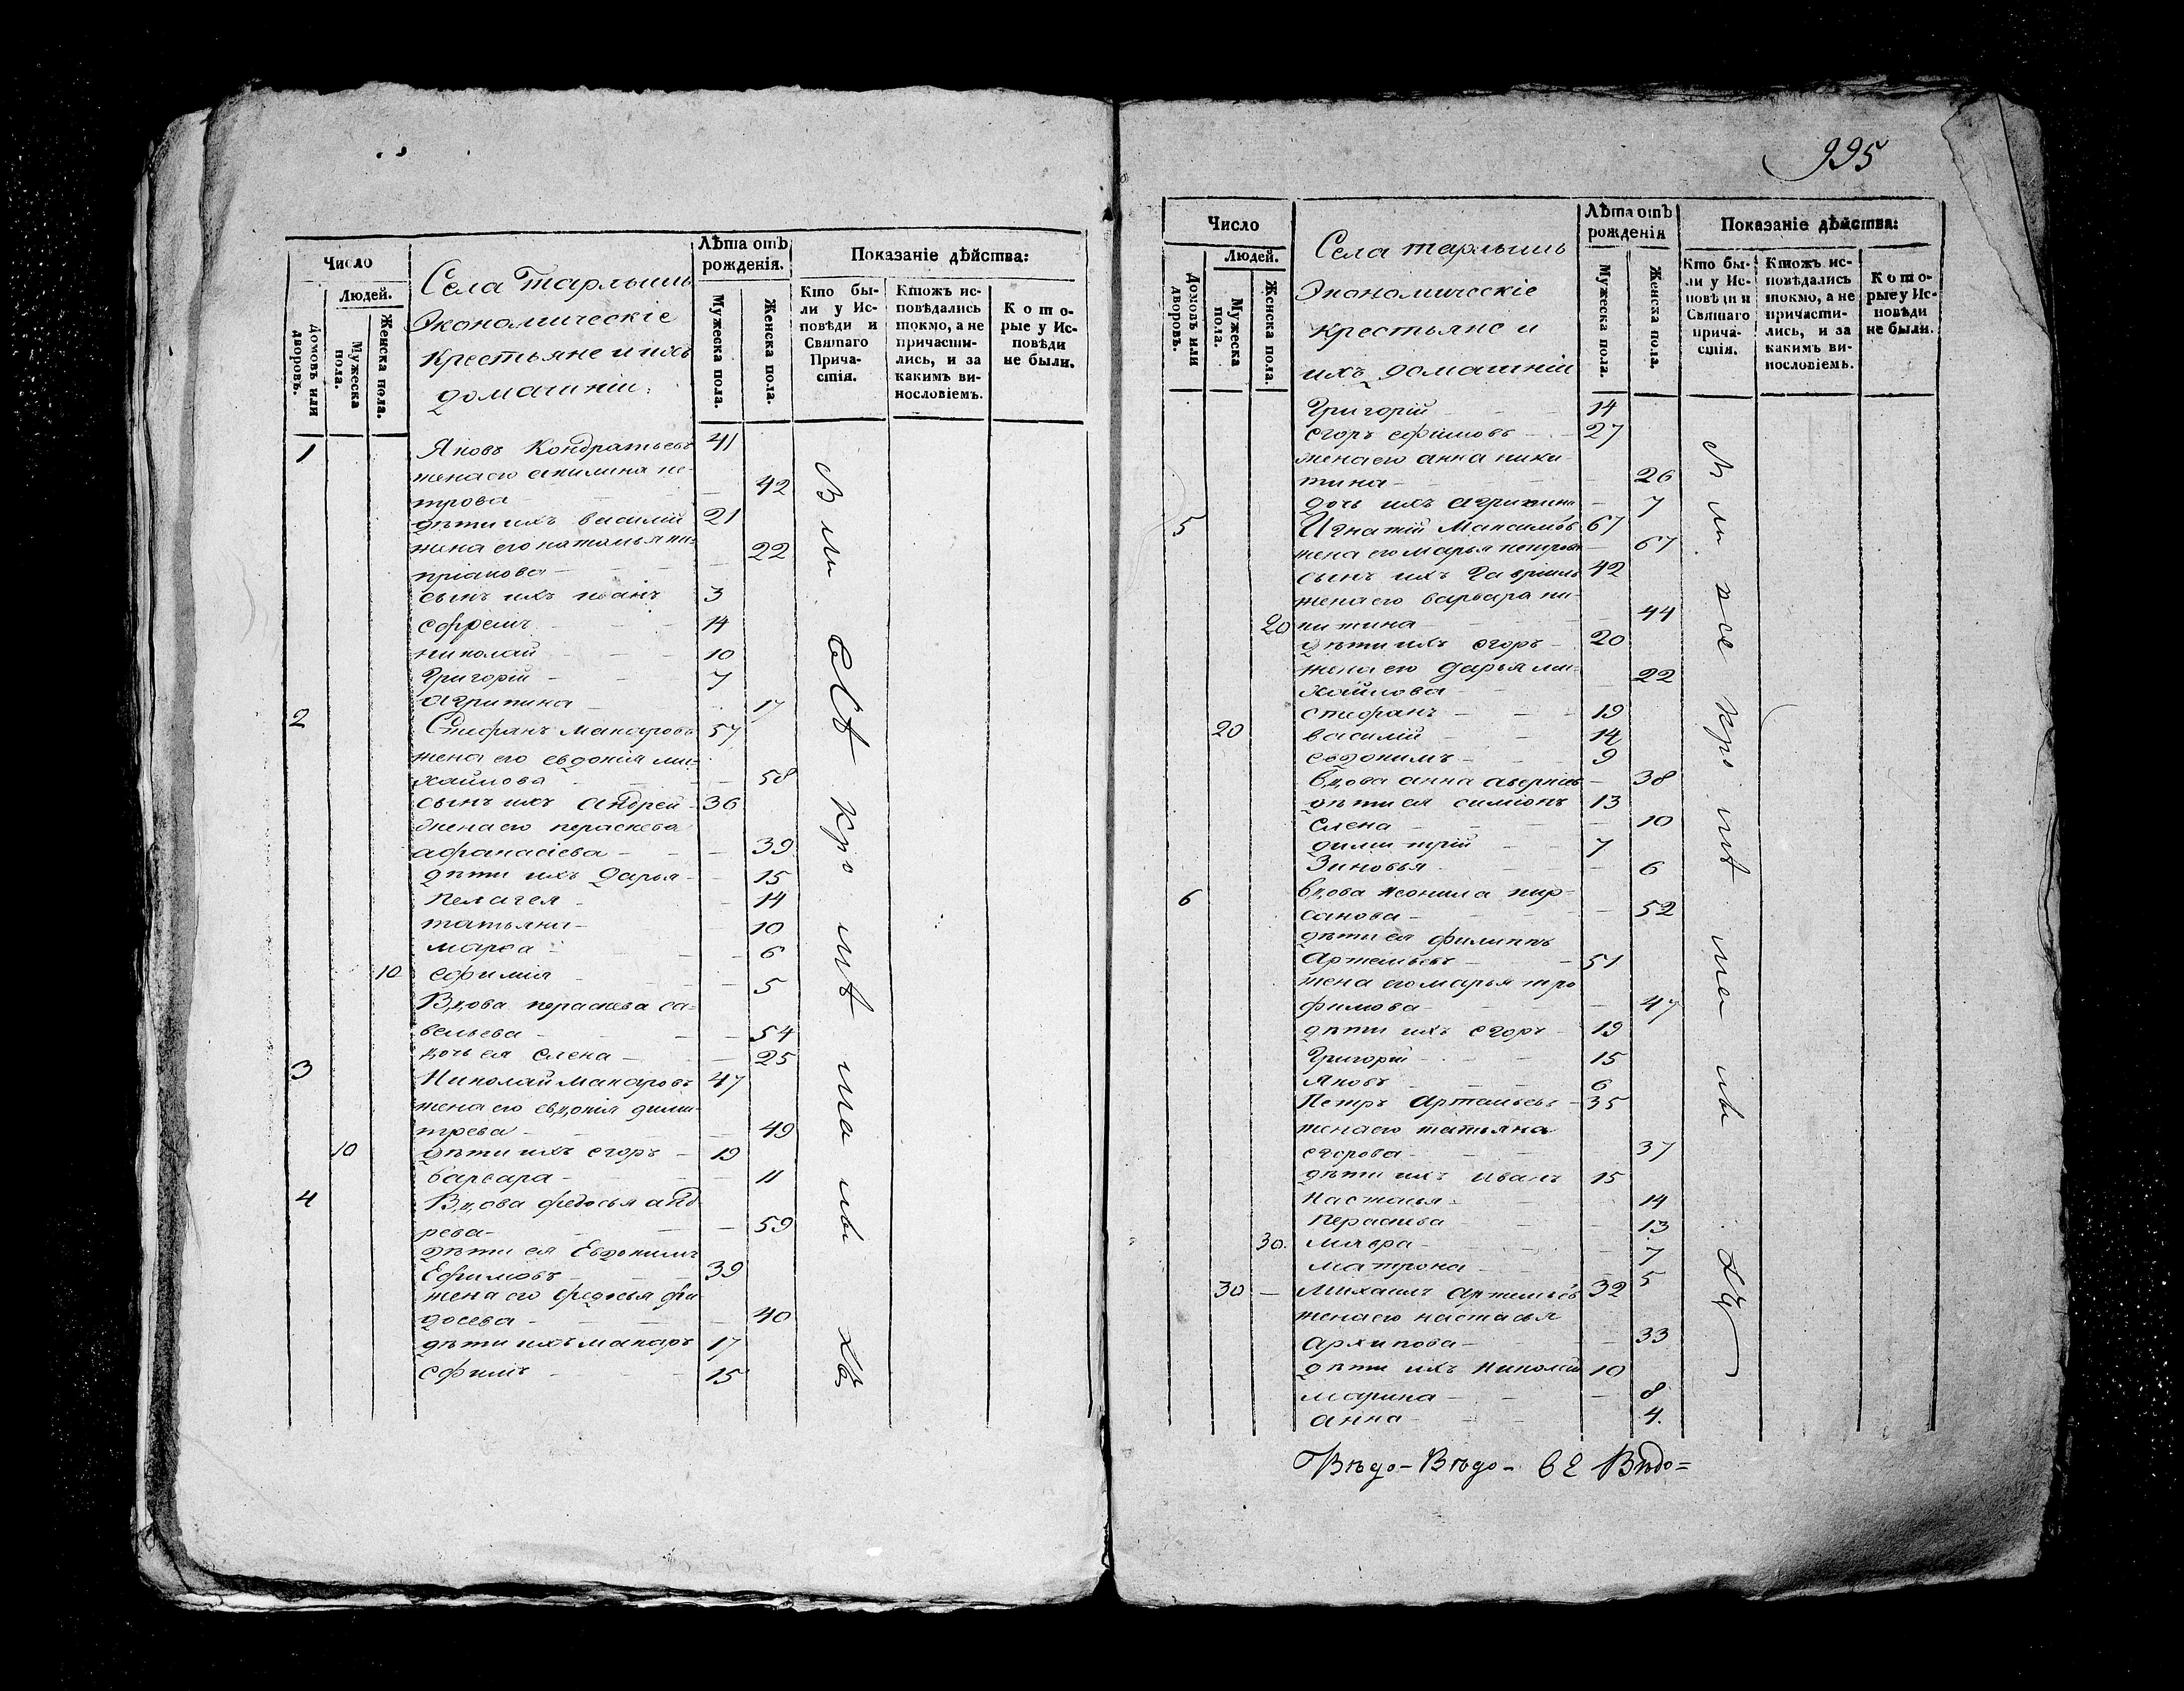 995
Число
Людей.
Домовъ или дворовъ.
Мужеска пола.
Женска пола.
Села Тарлыши
Экономическіе
крестьяне и ихъ
домашніи
Лѣта отъ рожденія.
Мужеска пола.
Женска пола.
Показаніе дѣйства:
Кто бы-
ли у Ис-
повѣди и
Святаго
Прича-
стія.
Ктожъ ис-
повѣдались
токмо, а не
причасти-
лись, и за
какимъ ви-
нословіемъ.
Кото-
рые у Ис-
повѣди
не были.
1 Яковъ Кондратьевъ 41
жена его акилина пе-
трова 42
дѣти ихъ василій 21
жена его наталья ки-
пріанова 22
сынъ ихъ иванъ 3
ефремъ 14
николай 10
Григорій 7
агрипина 17
2 Стефанъ макаровъ 57
жена его евдокія ми-
хайлова 58
сынъ ихъ андрей 36
жена его параскева
афанасіева 39
дѣти ихъ дарья 15
пелагея 14
татьяна 10
марѳа 6
10 ефимія 5
Вдова параскева са-
вельева 54
дочь ея елена 25
3 Николай макаровъ 47
жена его евдокія дими-
трева 49
10 дѣти ихъ егоръ 19
варвара 11
4 Вдова федосья анд-
рева 59
дѣти ея Евдокимъ
Ефимовъ 39
жена его федосья фе-
досева 40
дѣти ихъ макаръ 17
ефимъ 15
Число
Людей.
Домовъ или дворовъ.
Мужеска пола.
Женска пола.
Села тарлыши
Экономическіе
крестьяне и
ихъ домашніи
Лѣта отъ рожденія
Мужеска пола.
Женска пола.
Показаніе дѣйства:
Кто бы-
ли у Ис-
повѣди и
Святаго
прича-
стія.
Ктожъ ис-
повѣдались
токмо, а не
причасти-
лись, и за
какимъ ви-
нословіемъ.
Кото-
рые у Ис-
повѣди
не были.
Григорій 14
егоръ ефимовъ 27
жена его анна ники-
тина 26
дочь ихъ агрипина 7
5 Игнатій Максимовъ 67
жена его марья петрова 67
сынъ ихъ Гаврилъ 42
жена его варвара ни-
20 китина 44
дѣти ихъ егоръ 20
жена его дарья ми-
хайлова 22
стефанъ 19
20 василій 14
евдокимъ 9
вдова анна 38
дѣти ея симіонъ 13
елена 10
димитрій 7
Зиновья 6
6 вдова неонила кир-
санова 52
дѣти ея филиппъ
Артемьевъ 51
жена его марья тро
фимова 47
дѣти ихъ егоръ 19
Григорій 15
яковъ 6
Петръ Артемьевъ 35
жена его татьяна
егорова 37
дѣти ихъ иванъ 15
настасья 14
параскева 13
30. мавра 7
матрона 5
30 михаилъ артемьевъ 32
жена его настасья
архипова 33
дѣти ихъ николай 10
марина 8
анна 4.